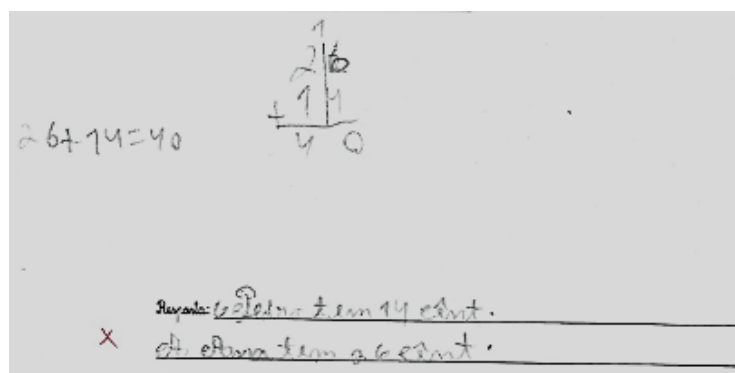 1
26
+ 14
26+14=40
4 0
Resposta: o Pedro tem 14 cênt.
A Ana tem 26 cênt.